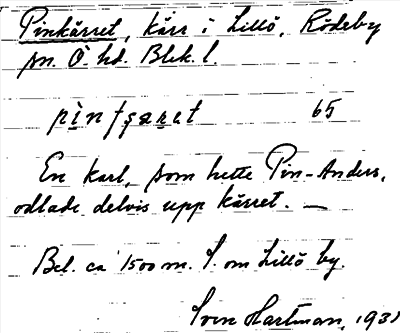 Pinkärret, kärr i Lillö, Rödeby
sn. Ö. hd. Blek. l.
65
En karl, som hette Pin-Anders,
odlade delvis upp kärret. —
Bel. ca 1500 m. S. om Lillö by.
Sven Hartman, 193